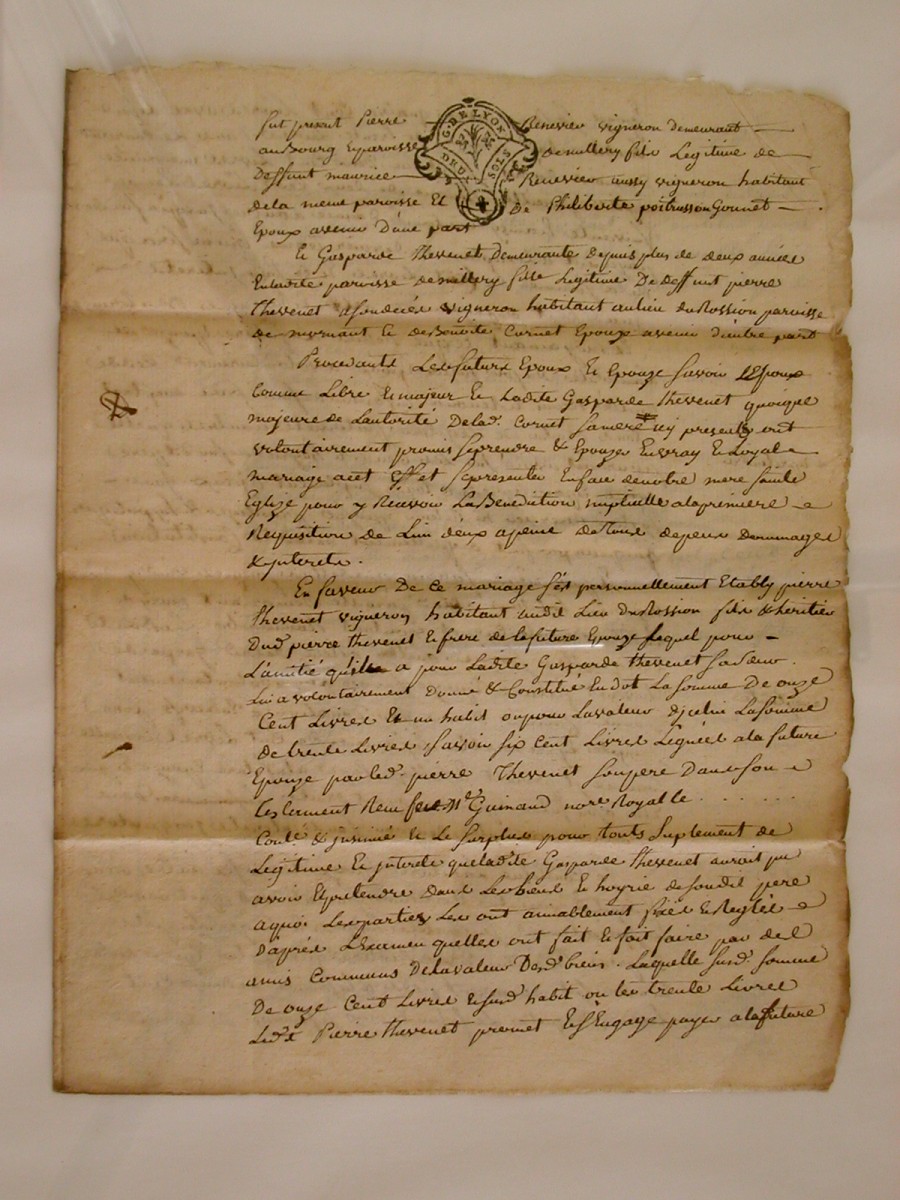 fut present Pierre Renevier vigneron demeurant
au Bourg & paroisse de millery fils Legitime de
Deffunt maurice Renevier aussy vigneron habitant
de la meme paroisse Et De Philiberte poitrasson Gonnet
Epoux avenir D'une part
G. DE LYON
DEUX SOLS
Et Gasparde Thevenet Demeurante depuis plus de deux année
En ladite paroisse de millery fille Legitime De deffunt pierre
Thevenet a son decés vigneron habitant au lieu du Rossion paroisse
de mornant Et de Benoite Cornet Epoux avenir d'autre part
Procedants Les futurs Epoux Et Epouze savoir L'Epoux
Comme Libre Et majeur Et Ladite Gasparde Thevenet quoique
majeure de L'autorité De lad. Cornet sa mere icy presente ont
volontairement promis se prendre & Epouzer En vray Et Loyal
mariage a cet effet se presenter En face de notre mere sainte
Eglize pour y Recevoir La Benediction nuptialle a la premiere
Requisition de L'un d'eux a peine de Tous depens dommages
& jnterets.
En faveur De ce mariage s'est personnellement Etably pierre
Thevenet vigneron habitant audit Lieu Du Rossion fils & heritier
Dud. pierre Thevenet Et frere de la future Epouze Lequel pour
L'amitié qu'il a pour Ladite Gasparde Thevenet sa sœur
Lui a volontairement donné & Constitué En dot La somme De onze
Cent Livres Et un habit ou pour La valeur d'jcelui La somme
de trente Livres savoir six Cent Livres Leguées a la future
Epouze par led. pierre Thevenet son pere Dans son
Testament Recu Me. Guinand nore. Royal le . . . . . .
Contlé. & jnsinué Et Le surplus pour touts suplement de
Legitime Et jnterets que ladite Gasparde Thevenet auroit pu
avoir Et pretendre dans Les biens Et hoyrie de son dit pere
a quoi Les parties Les ont aimablement fixés Et Reglés
D'aprés L'Examen qu'elles ont fait Et fait faire par de
amis Communs De la valeur Desd. biens. Laquelle susd. somme
De onze Cent Livres Et susd. habit ou les trente Livres
Led. Pierre Thevenet promet Et s'Engage payer a la future